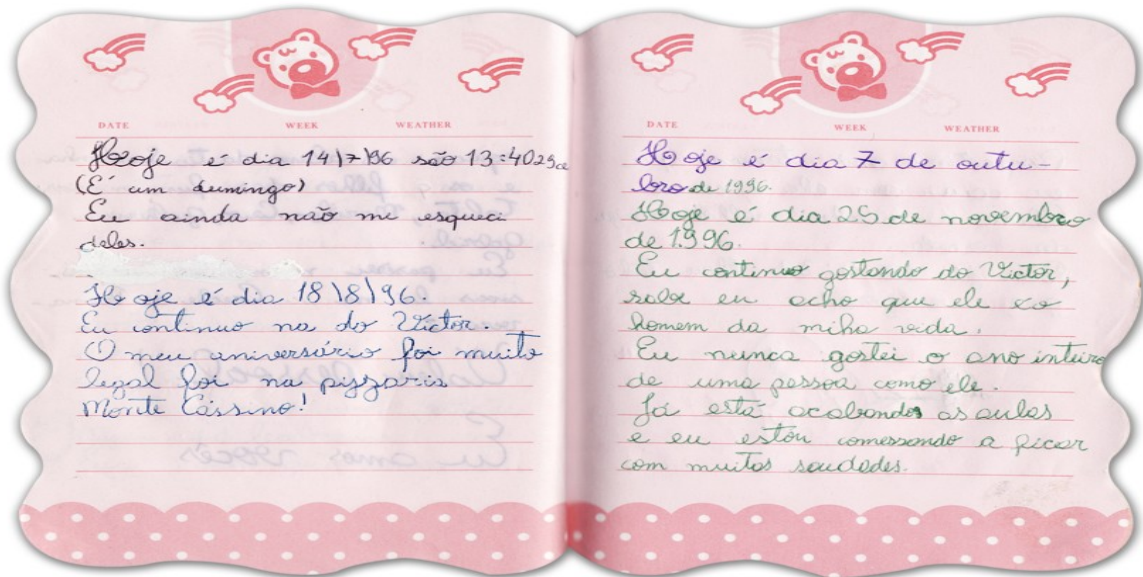 DATE WEEK WEATHER
Hoje é dia 14\7\96 são 13:40
(É um dumingo)
Eu ainda não mi esqueci
deles.
Hoje é dia 18\8\96.
Eu continuo na do Victor.
O meu aniversário foi muito
legal foi na pizzaris
Monte Cássino!
DATE WEEK WEATHER
Hoje é dia 7 de outu-
bro de 1996.
Hoje é dia 25 de novembro
de 1996.
Eu continuo gostando do Victor,
sabe eu acho que ele é o
homem da miha vida.
Eu nunca gostei o ano inteiro
de uma pessoa como ele.
Já está acabando as aulas
e eu estou comessando a ficar
com muitas saudades.